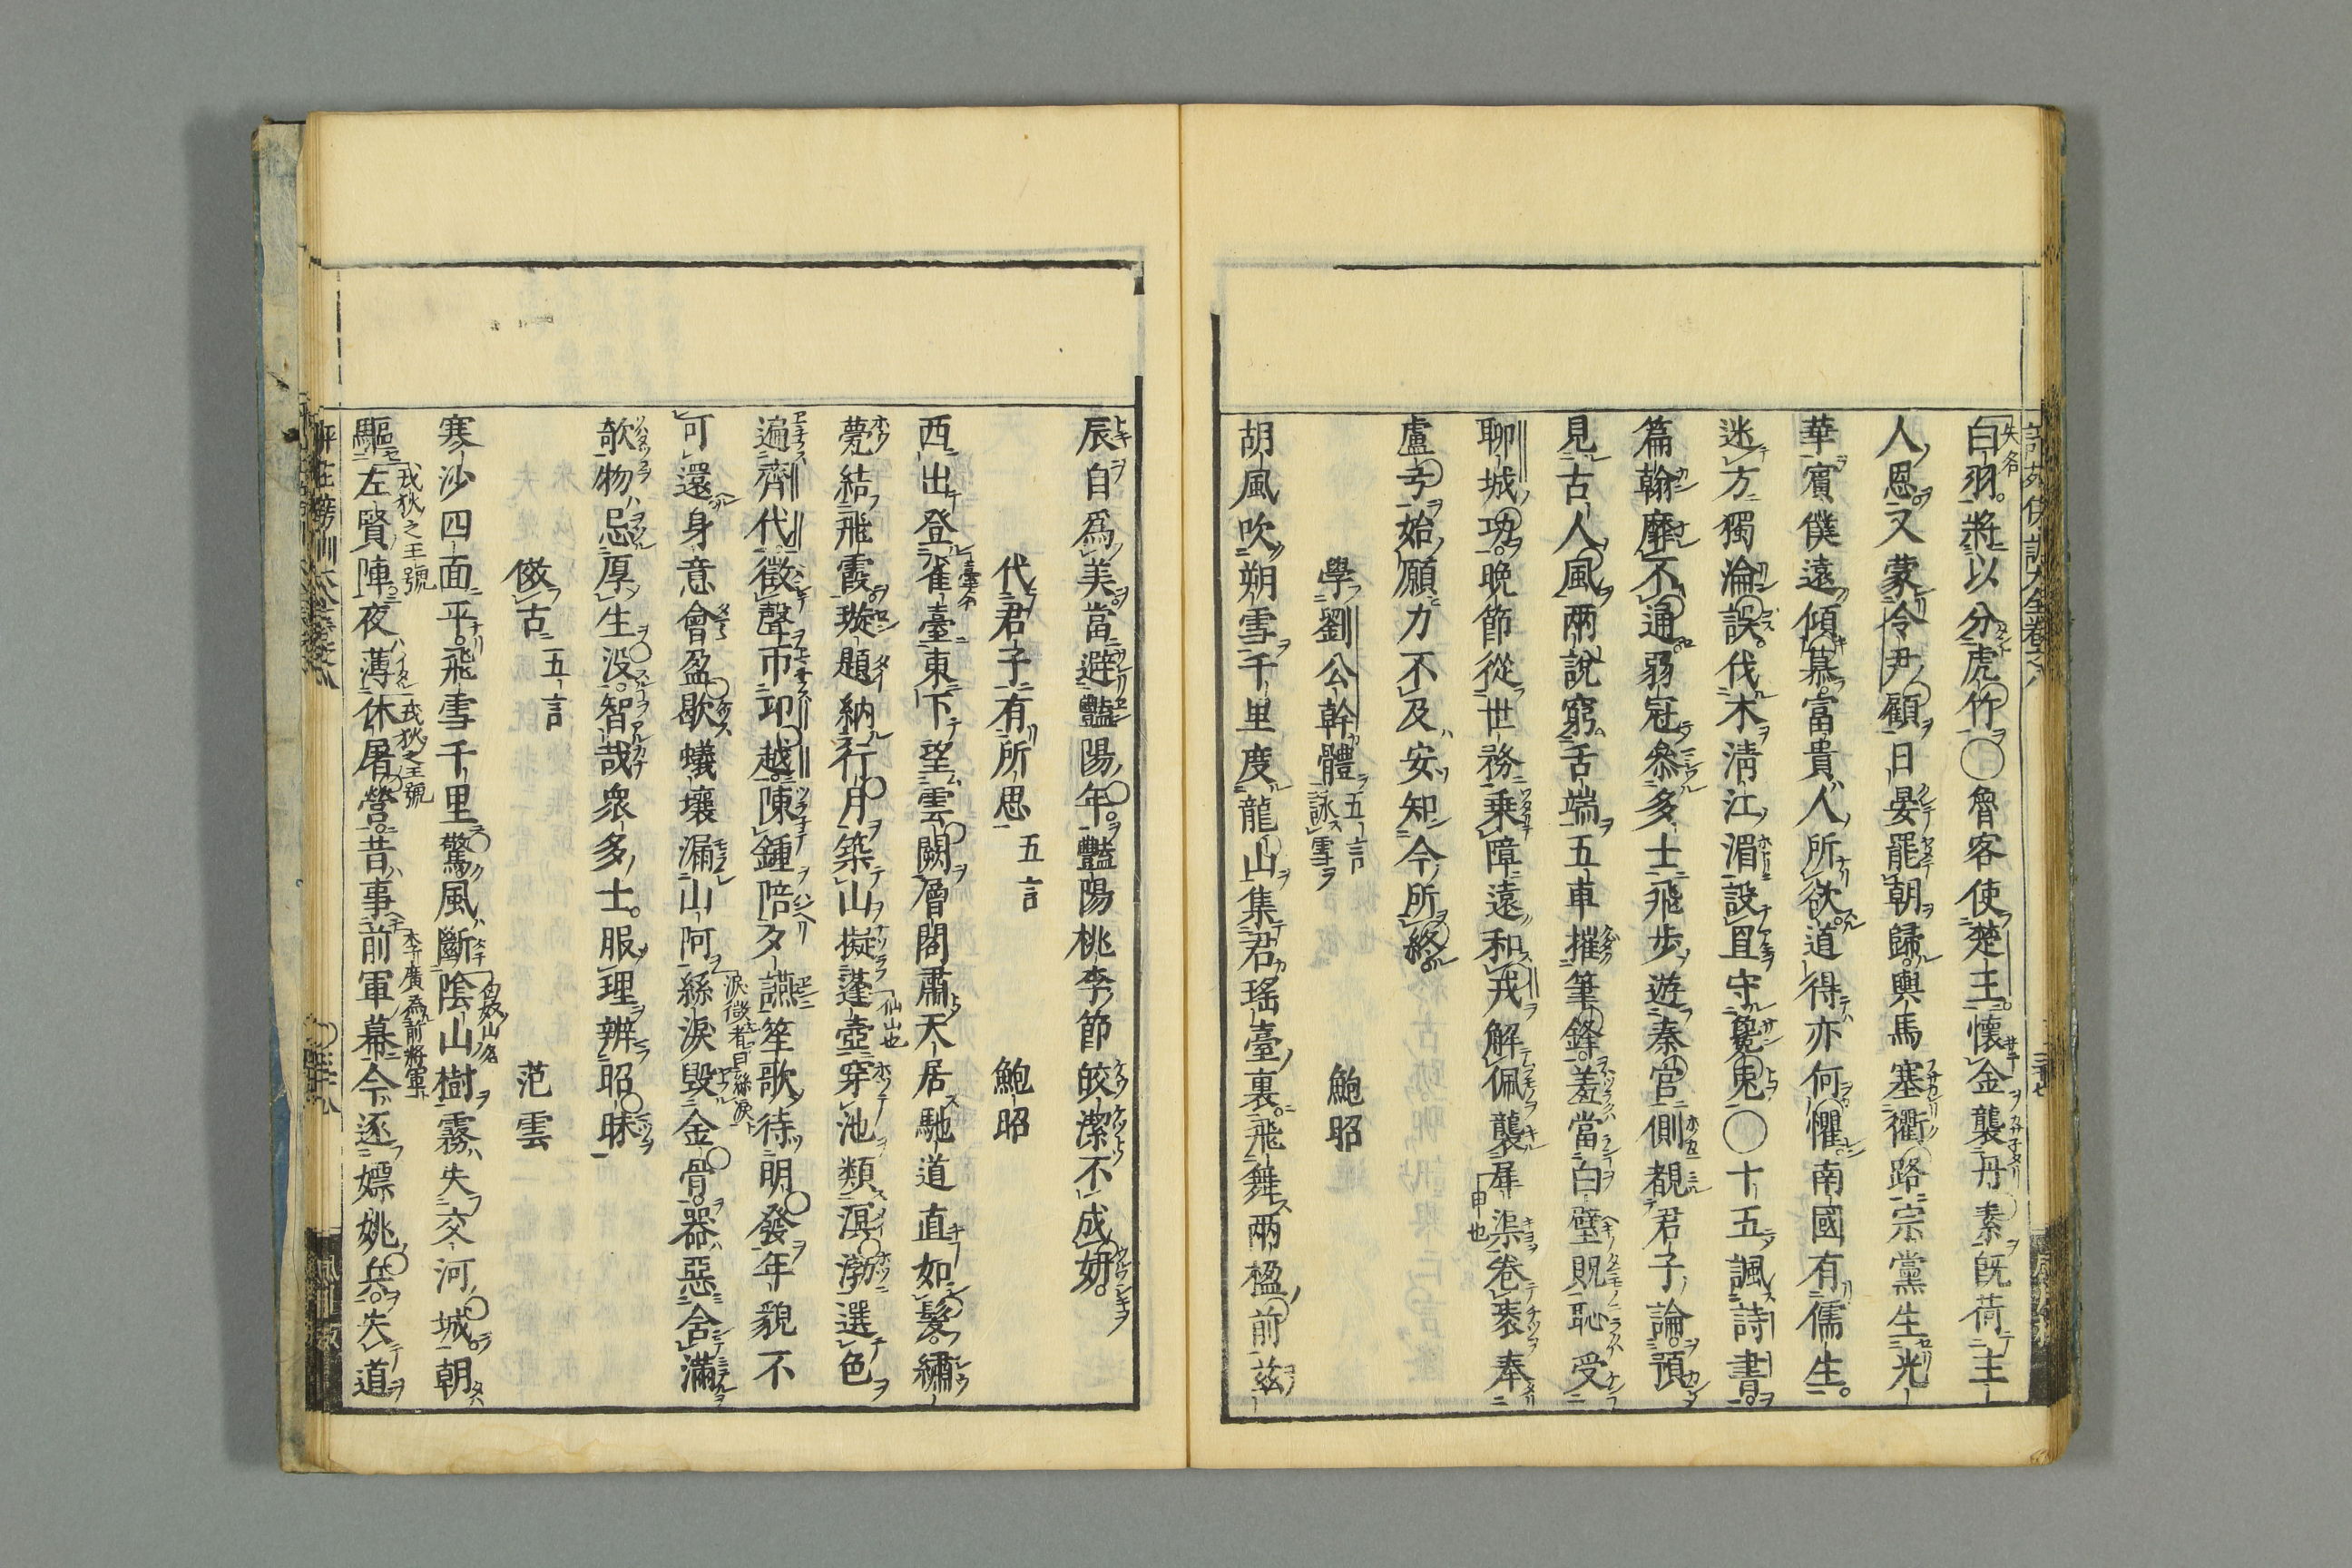 白羽將以分虎竹○魯客使楚王懷金襲丹素既荷主
人恩又蒙令尹顧日晏罷朝歸輿馬塞衢路宗黨生光
華賓僕遠傾慕富貴人所欲道得亦何懼南國有儒生
迷方獨淪誤伐木清江湄設罝守毚兎○十五諷詩書
篇翰靡不通弱冠叅多士飛步遊秦宮側覩君子論預
見古人風兩說窮舌端五車摧筆鋒羞當白璧貺恥受
聊城功晚節從世務乗障遠和戎解佩襲犀渠卷袠奉
盧弓始願力不及安知今所終
學劉公幹體 五言 詠雪 鮑昭
胡風吹朔雪千里度龍山集君瑤臺裏飛舞兩楹前茲
辰自爲美當避豔陽年豔陽桃李節皎潔不成妍
代君子有所思 五言 鮑昭
西出登雀臺東下望雲闕層閣肅天居馳道直如髮繡
甍結飛霞璇題納行月築山擬蓬壺穿池類溟渤選色
遍齊代徵聲帀卭越陳鍾陪夕讌笙歌待明發年貌不
可還身意會盈歇蟻壤漏山阿絲淚毀金骨器惡含滿
欹物忌厚生沒智哉衆多士服理辨昭昧
傚古 五言 范雲
寒沙四面平飛雪千里驚風斷陰山樹霧失交河城朝
驅左賢陣夜薄休屠營昔事前軍幕今逐嫖姚兵失道